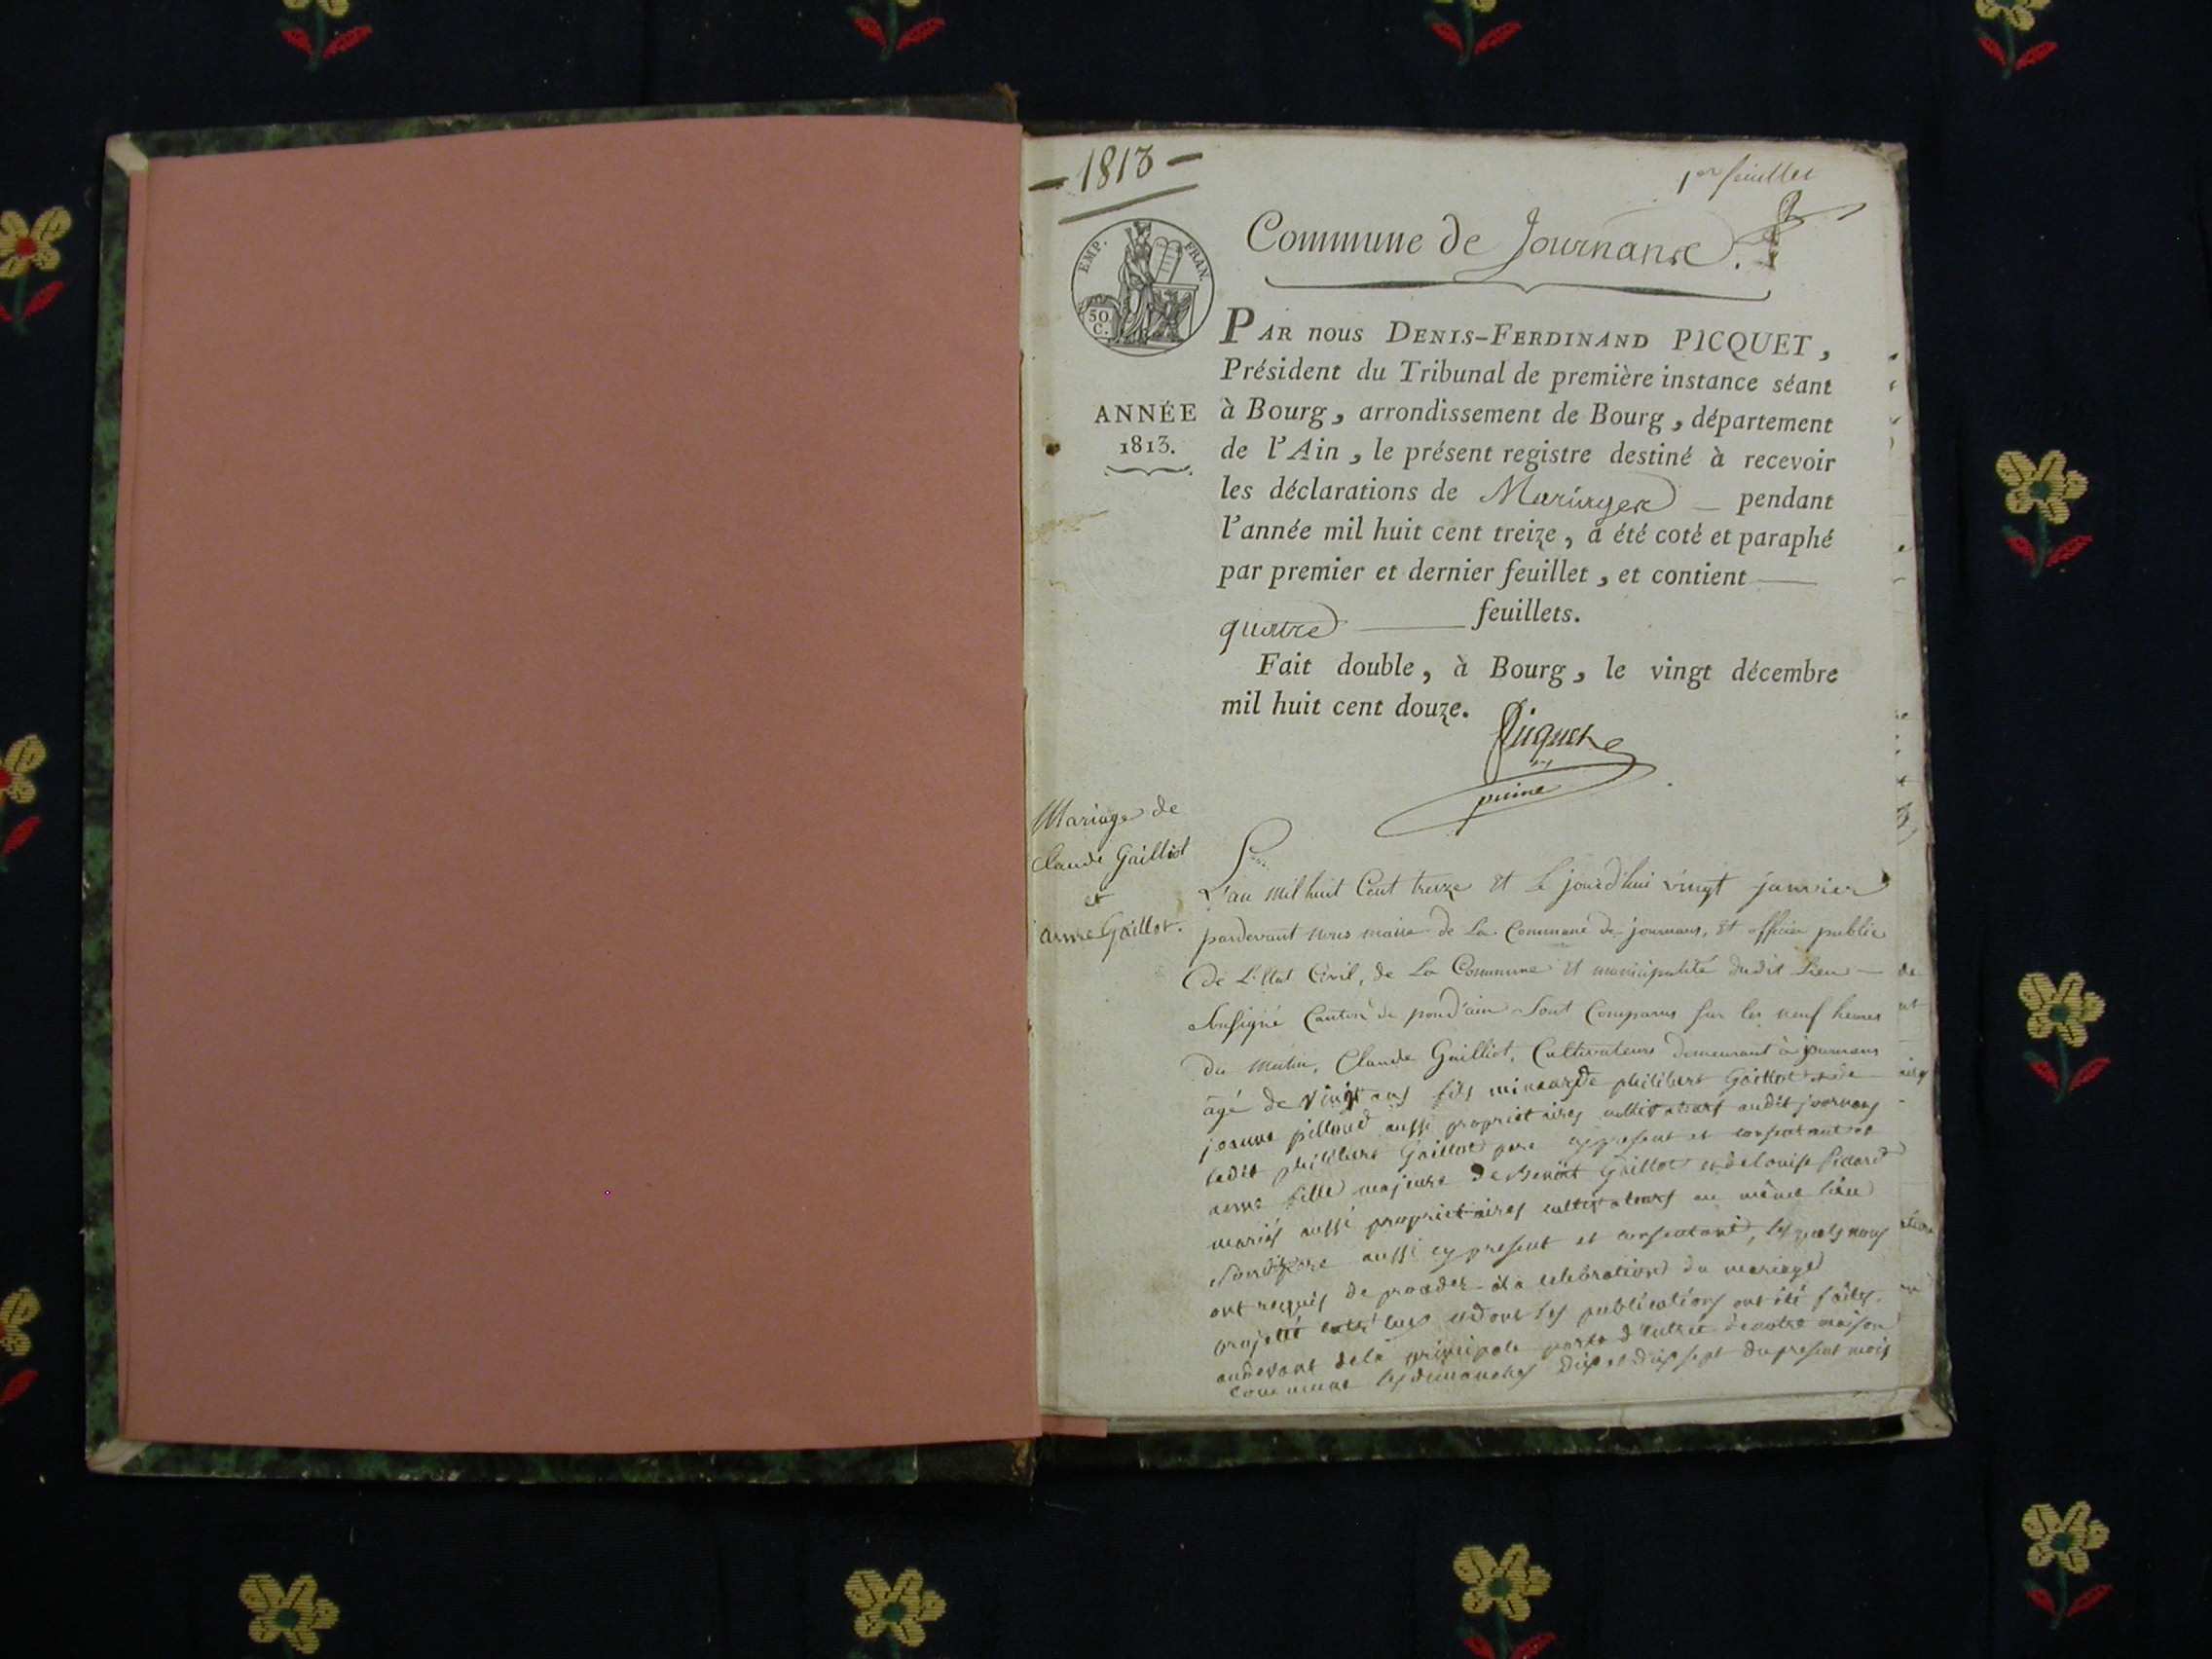 - 1813 -
1er feuillet
EMP. FRAN.
50
C.
Commune de Journans.
PAR nous DENIS-FERDINAND PICQUET,
Président du Tribunal de première instance séant
à Bourg, arrondissement de Bourg, département
de l'Ain, le présent registre destiné à recevoir
les déclarations de Mariages — pendant
l'année mil huit cent treize, a été coté et paraphé
par premier et dernier feuillet, et contient —
quatre — feuillets.
Fait double, à Bourg, le vingt décembre
mil huit cent douze.
ANNÉE
1813.
Picquet
Mariage de
Claude Gailliot
et
anne Gaillot.
L'an mil huit Cent treize et le jourd'hui vingt janvier
pardevant nous maire de La Commune de journans, et officier public
de L'Etat Civil, de La Commune et municipalité dudit Lieu —
Soussigné Canton de pond'ain Sont Comparus sur les neuf heures
du matin, Claude Gailliot, Cultivateur demeurant à journans
âgé de vingt ans fils mineur de philibert Gaillot et de
jeanne pilloud aussi proprietaires cultivateurs audit journans
ledit philibert Gaillot pere cy present et consentant et
anne fille majeure de Benoit Gaillot et de louise
mariés aussi proprietaires cultivateurs au même lieu
pere aussi cy present et consentant, lesquels nous
ont requis de proceder à la celebration du mariage
projetté entre eux et dont les publications ont été faites
audevant de la principale porte d'entrée de notre maison
commune les dimanches dix et dix sept du present mois